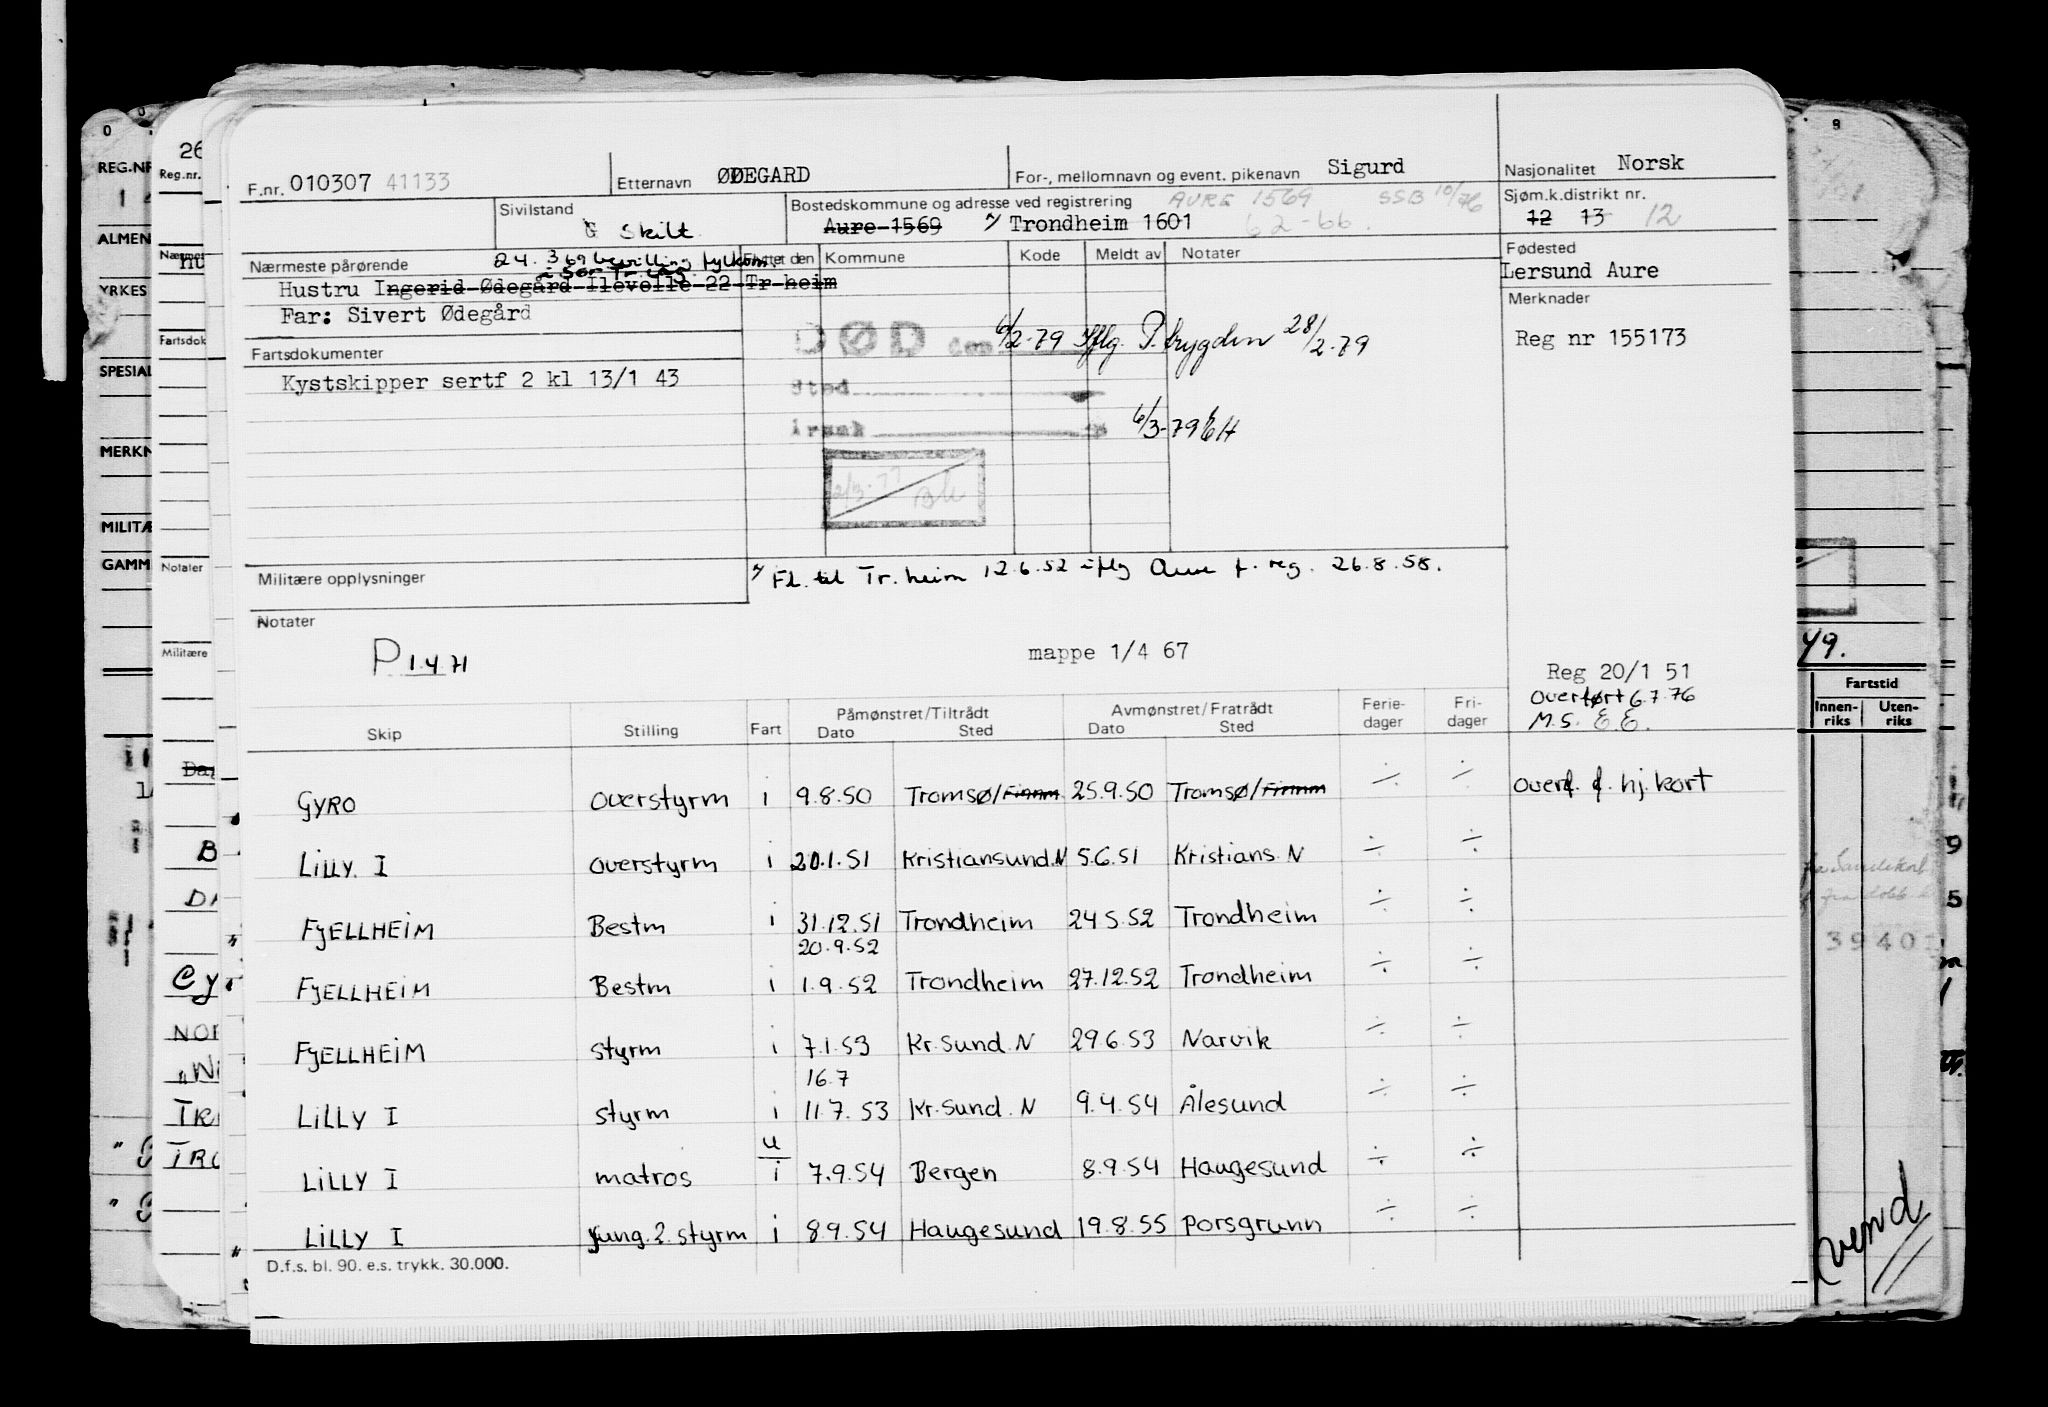 F.nr. 010307 41133
Etternavn ØDEGARD
For-, mellomnavn og event. pikenavn Sigurd
Nasjonalitet Norsk
Sivilstand
G Skilt
Bostedskommune og adresse ved registrering AURE 1569 SSB 10/76
Aure 1569 Trondheim 1601 62-66.
Sjøm.k.distrikt nr.
12 13 12
Nærmeste pårørende 24.3 69 bevilling fylkesm.
i Sør Tr.lag
Flyttet den Kommune Kode Meldt av Notater
Fødested
Lersund Aure
Hustru Ingerid Ødegård Ilevolle 22 Tr heim
Far: Sivert Ødegård
Merknader
Reg nr 155173
DØD den 6/2-79 Iflg. P.trygden 28/2-79
Fartsdokumenter
Kystskipper sertf 2 kl 13/1 43
Sted
Årsak
6/3-79
Militære opplysninger
Fl. til Tr.heim 12.6.52 iflg Aure f. reg. 26.8.58.
Notater
P 1.4.71
mappe 1/4 67
Reg 20/1 51
Overført 6.7.76
M.S. E.E.
Skip Stilling Fart Påmønstret/Tiltrådt Dato Sted Avmønstret/Fratrådt Dato Sted Ferie-dager Fri-dager
GYRO overstyrm i 9.8.50 Tromsø/Finnm 25.9.50 Tromsø/Finnm ÷ ÷ overf. f. hj.kort
LILLY I overstyrm i 20.1.51 Kristiansund.N 5.6.51 Kristians.N ÷ ÷
FJELLHEIM Bestm i 31.12.51 Trondheim 24.5.52 Trondheim ÷ ÷
20.9.52
FJELLHEIM Bestm i 1.9.52 Trondheim 27.12.52 Trondheim ÷ ÷
FJELLHEIM styrm i 7.1.53 Kr.sund.N 29.6.53 Narvik ÷ ÷
16.7
LILLY I styrm i 11.7.53 Kr.sund.N 9.4.54 Ålesund ÷ ÷
LILLY I matros u/i 7.9.54 Bergen 8.9.54 Haugesund ÷ ÷
LILLY I fung.2.styrm i 8.9.54 Haugesund 19.8.55 Porsgrunn ÷ ÷
D.f.s. bl. 90. e.s. trykk. 30.000.
REG.NR
ALMEN
YRKES
SPESIAL
MERKN
MILITÆ
GAMM
26
Reg.nr.
Nærmest
Fartsdok
Notater
Militære
49.
Fartstid
Innen-riks Uten-riks
3940
vend